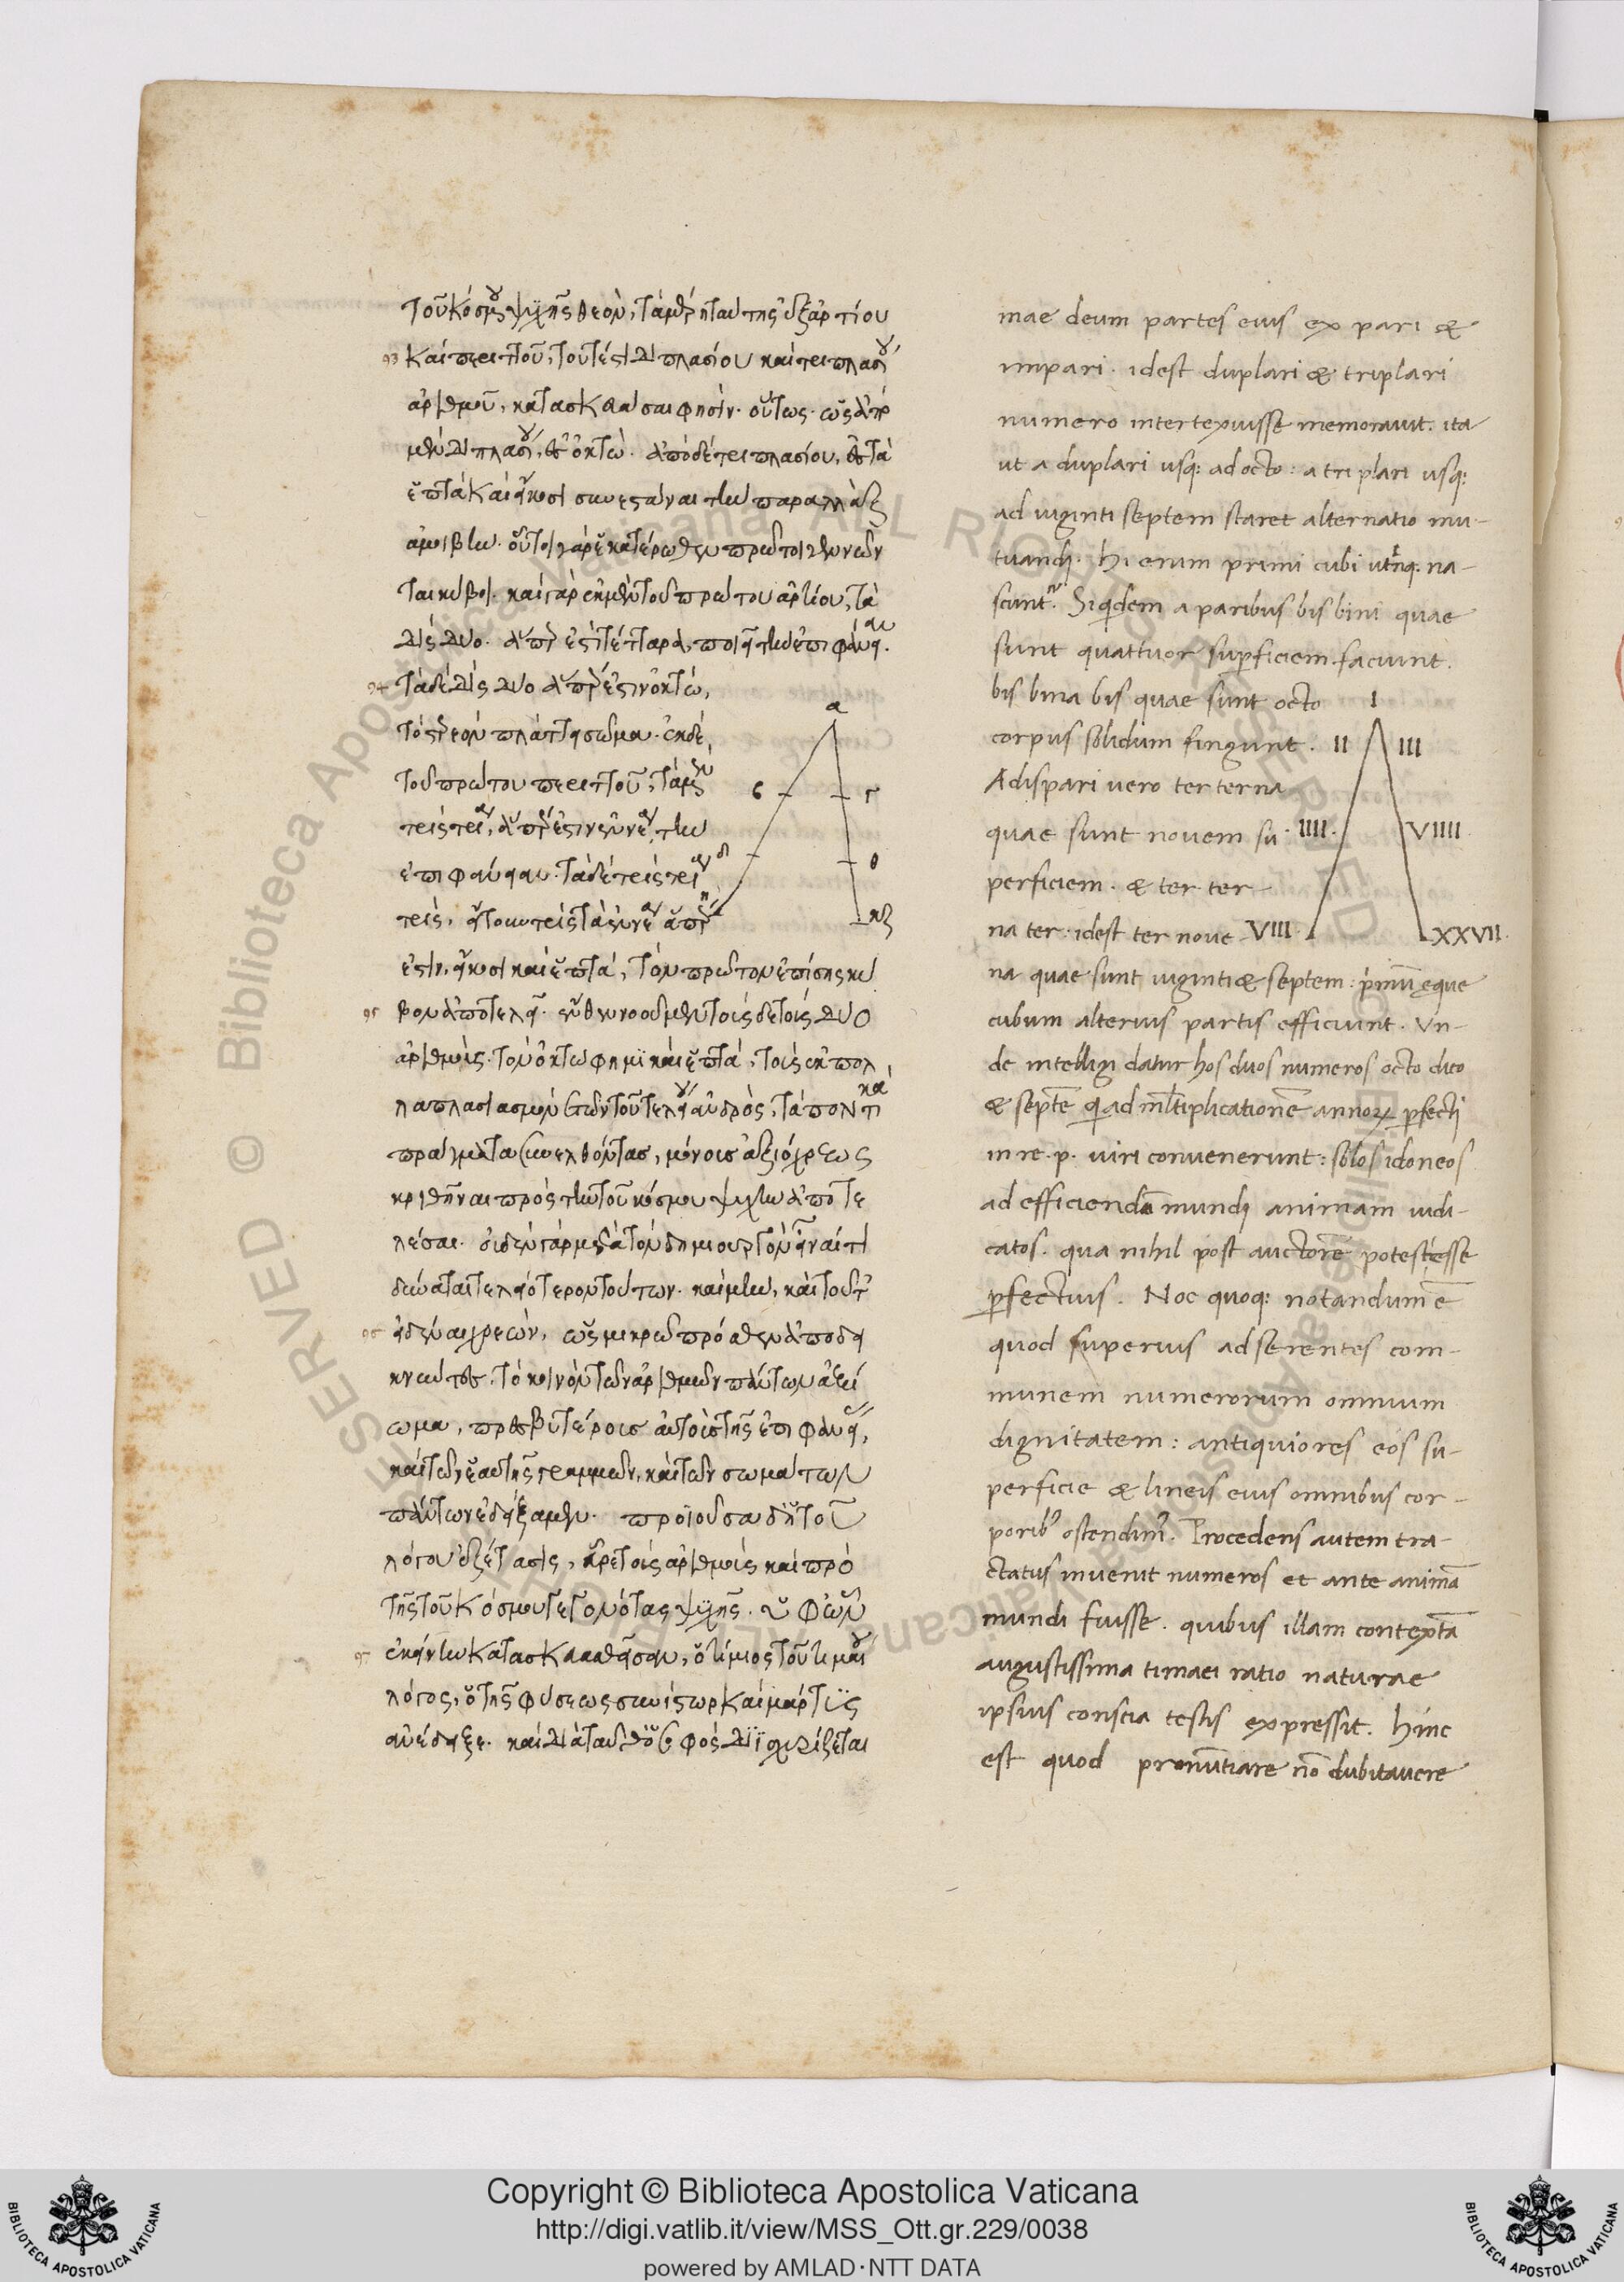 τοῦ κόσμου ψυχῆς θεὸν, τὰ μέρη ταύτης ἐξ ἀρτίου
93 καὶ περιττοῦ, τουτέστι διπλασίου καὶ τριπλασίου
ἀριθμοῦ, κατασκευάσαι φησίν. οὕτως ὡς ἀπὸ
μὲν διπλασίου, ὀκτώ. ἀπὸ δὲ τριπλασίου, τὰ
ἑπτὰ καὶ εἴκοσι συνεστάναι τὴν παραλλὰξ
ἀμοιβήν. οὗτοι γὰρ ἑκατέρωθεν πρῶτοι γεννῶν
ται κύβοι. καὶ γὰρ ἐκ μὲν τοῦ πρώτου ἀρτίου, τὰ
δὶς δύο. ἅπερ ἐστὶ τέτταρα, ποιεῖ τὴν ἐπιφάνειαν.
94 τὰ δὲ δὶς δύο ἅπερ ἐστὶν ὀκτώ,
τὸ στερεὸν πλάττει σῶμα. ἐκ δὲ
τοῦ πρώτου περιττοῦ, τὰ μὲν
τρὶς τρία, ἅπερ ἐστὶν ἐννέα, τὴν
ἐπιφάνειαν. τὰ δὲ τρὶς τρία
τρὶς, ἤγουν τρὶς τὰ ἐννέα ἅπερ
ἐστὶν, εἴκοσι καὶ ἑπτὰ, τὸν πρῶτον ἐπίσης κύ
95 βον ἀποτελεῖ. ἔνθεν νοοῦμεν τοῖς δὲ τοῖς δύο
ἀριθμοῖς. τὸν ὀκτὼ φημὶ καὶ ἑπτὰ, τοῖς ἐκ πολ
λαπλασιασμοῦ ἐτῶν τοῦ τελείου ἀνδρὸς, τὰ πολιτικὰ
πράγματα συνελθόντας, μόνοις ἀξιόχρεως
κριθῆναι πρὸς τὴν τοῦ κόσμου ψυχὴν ἀποτε
λέσαι. οὐδὲν γὰρ μετὰ τὸν δημιουργὸν εἶναί τι
δύναται τελειότερον τούτων. καὶ μὴν, καὶ τοῦτ
96 εἰδέναι χρεὼν, ὡς μικρῷ πρόσθεν ἀποδει
κνύντες. τὸ κοινὸν τῶν ἀριθμῶν πάντων ἀξί
ωμα, πρεσβυτέροις αὐτοὺς τῆς ἐπιφανείας,
καὶ τῶν ἑαυτῆς γραμμῶν, καὶ τῶν σωμάτων
πάντων ἐδείξαμεν. προϊοῦσα δὴ τοῦ
λόγου ἐξέτασις, εὗρε τοὺς ἀριθμοὺς καὶ πρὸ
τῆς τοῦ κόσμου γεγονότας ψυχῆς. ὑφ' ὧν
97 ἐκείνην κατασκευασθῆσαν, ὁ τίμιος τοῦ τιμαίου
λόγος, ὁ τῆς φύσεως συνίστωρ καὶ μάρτυς
ἀνέδειξε. καὶ διὰ ταῦθ' ὁ σοφὸς διϊσχυρίζεται
α
β γ
δ θ
η κζ
mae deum partes eius ex pari &
impari. idest duplari & triplari
numero intertexuisse memorauit. ita
ut a duplari usq: ad octo: a triplari usq:
ad uiginti septem staret alternatio mu-
tuandi. hi enim primi cubi utrinq: na-
scunt². Siqdem a paribus bis bini quae
sunt quattuor supficiem faciunt.
bis bina bis quae sunt octo
corpus solidum fingunt.
A dispari uero ter terna
quae sunt nouem su-
perficiem. & ter ter-
na ter: idest ter noue
na quae sunt uiginti & septem: primū ęque
cubum alterius partis efficiunt. Vn-
de intelligi datur hos duos numeros octo dico
& septē qui ad m̄ltiplicationē annorꝝ pfecti
in re. p. uiri conuenerunt: solos idoneos
ad efficiendā mundi animam iudi-
catos. qua nihil post auctorē potest esse
pfectius. Noc quoq: notandum ē
quod superius adserentes com-
munem numerorum omnium
dignitatem: antiquiores eos su-
perficie & lineis eius omnibus cor-
porib⁹ ostendim⁹. Procedens autem tra-
ctatus inuenit numeros et ante animā
mundi fuisse. quibus illam contextā
augustissima timaei ratio naturae
ipsius conscia testis expressit. hinc
est quod pronuntiare nō dubitauere
I
II III
IIII. VIIII
VIII XXVII.
Copyright © Biblioteca Apostolica Vaticana
http://digi.vatlib.it/view/MSS_Ott.gr.229/0038
powered by AMLAD·NTT DATA